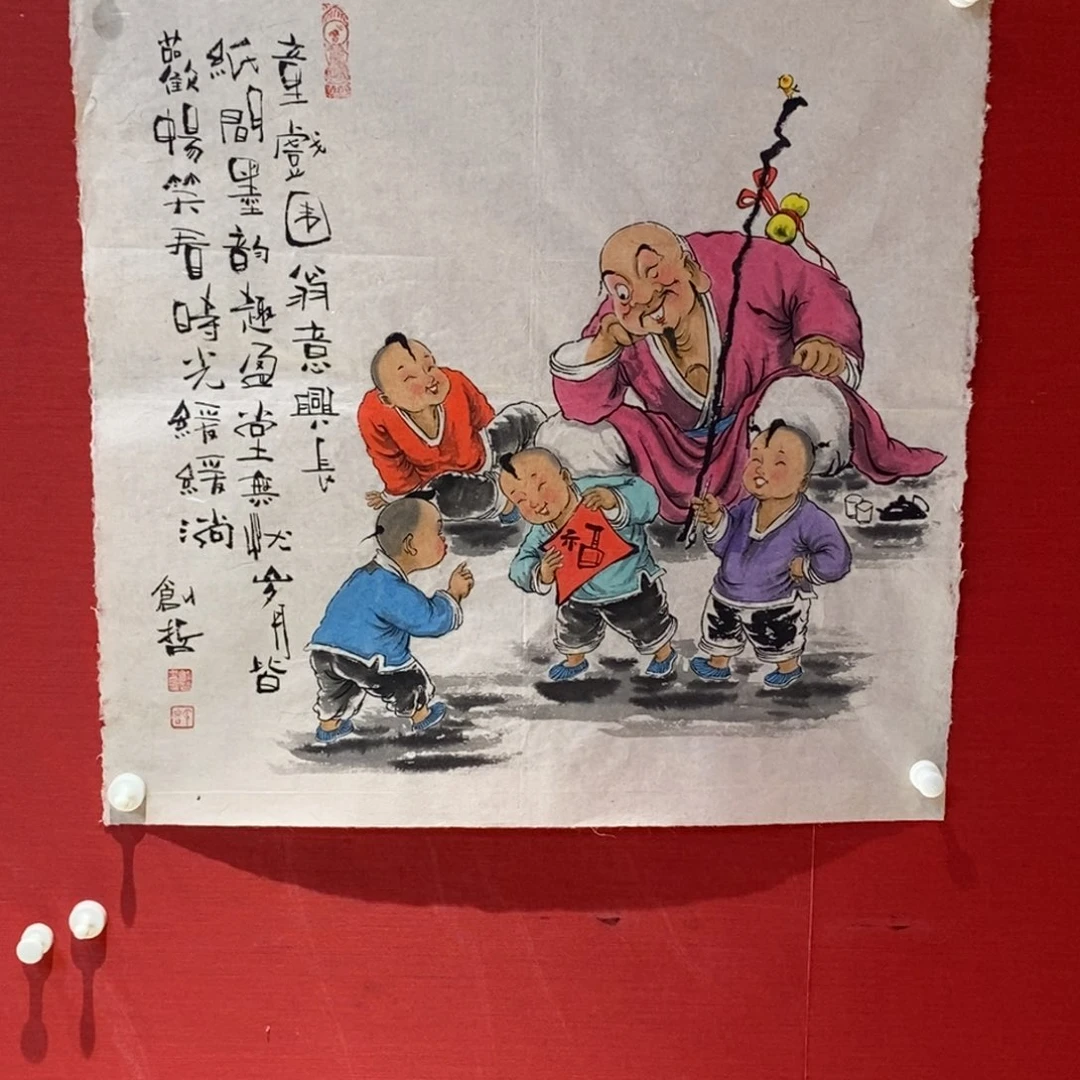 童戲围翁意興長
紙間墨韵趣盈堂無忧岁月皆
歡暢笑看時光緩緩淌
創哲
福